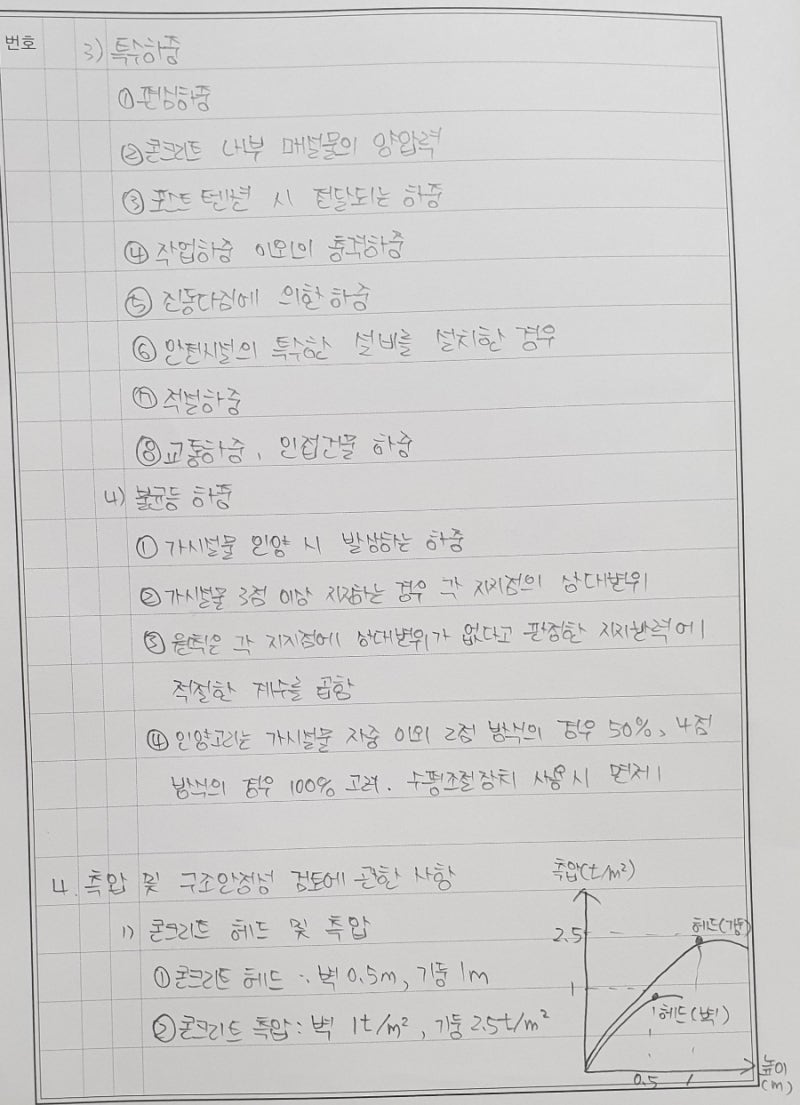 번호
3) 특수하중
① 편심하중
② 콘크리트 내부 매설물의 양압력
③ 포스트 텐션 시 전달되는 하중
④ 작업하중 이외의 충격하중
⑤ 진동다짐에 의한 하중
⑥ 안전시설의 특수한 설비를 설치한 경우
⑦ 적설하중
⑧ 교통하중, 인접건물 하중
4) 불균등 하중
① 가시설물 인양 시 발생하는 하중
② 가시설물 3점 이상 지지하는 경우 각 지지점의 상대변위
③ 원칙은 각 지지점에 상대변위가 없다고 판정한 지지반력에
적절한 계수를 곱함
④ 인양고리는 가시설물 자중 이외 2점 방식의 경우 50%, 4점
방식의 경우 100% 고려. 수평조절장치 사용시 면제
4. 측압 및 구조안정성 검토에 관한 사항
1) 콘크리트 헤드 및 측압
① 콘크리트 헤드 : 벽 0.5m, 기둥 1m
② 콘크리트 측압 : 벽 1t/m², 기둥 2.5t/m²
측압(t/m²)
2.5
헤드(기둥)
1
헤드(벽)
0.5 1
높이
(m)